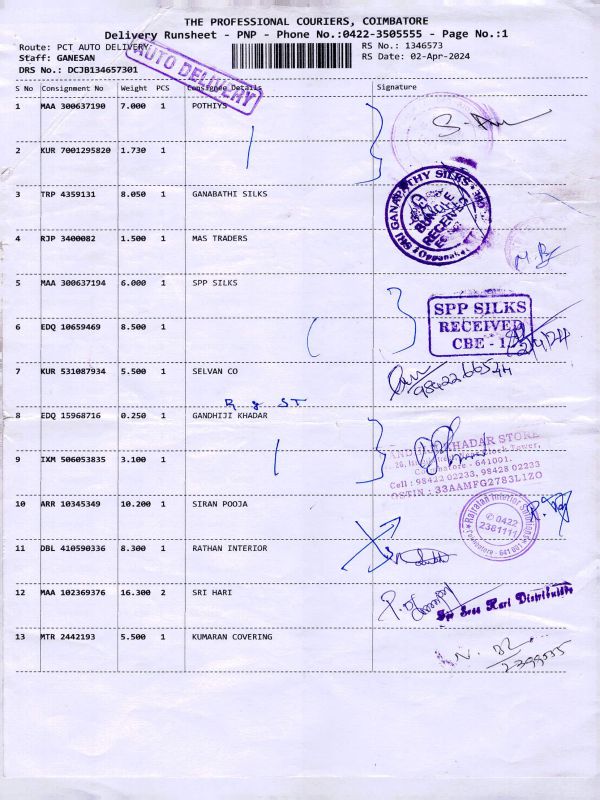 THE PROFESSIONAL COURIERS, COIMBATORE
Delivery Runsheet - PNP - Phone No.:0422-3505555 - Page No.:1
Route: PCT AUTO DELIVERY
RS No.: 1346573
Staff: GANESAN
RS Date: 02-Apr-2024
DRS No.: DCJB134657301
AUTO DELIVERY
S No Consignment No Weight PCS Consignee Details Signature
1 MAA 300637190 7.000 1 POTHIYS
2 KUR 7001295820 1.730 1
3 TRP 4359131 8.050 1 GANABATHI SILKS
SRI GANAPATHY SILKS
BUNDLE
RECEIVED
4 RJP 3400082 1.500 1 MAS TRADERS
5 MAA 300637194 6.000 1 SPP SILKS
SPP SILKS
RECEIVED
CBE - 1
6 EDQ 10659469 8.500 1
7 KUR 531087934 5.500 1 SELVAN CO
8 EDQ 15968716 0.250 1 GANDHIJI KHADAR
KHADAR STORE
Coimbatore - 641001.
Cell : 98422 02233, 98428 02233
GSTIN : 33AAMFG2783L1ZO
9 IXM 506053835 3.100 1
10 ARR 10345349 10.200 1 SIRAN POOJA
0422
2381111
11 DBL 410590336 8.300 1 RATHAN INTERIOR
12 MAA 102369376 16.300 2 SRI HARI
Sri Sree Hari Distributors
13 MTR 2442193 5.500 1 KUMARAN COVERING